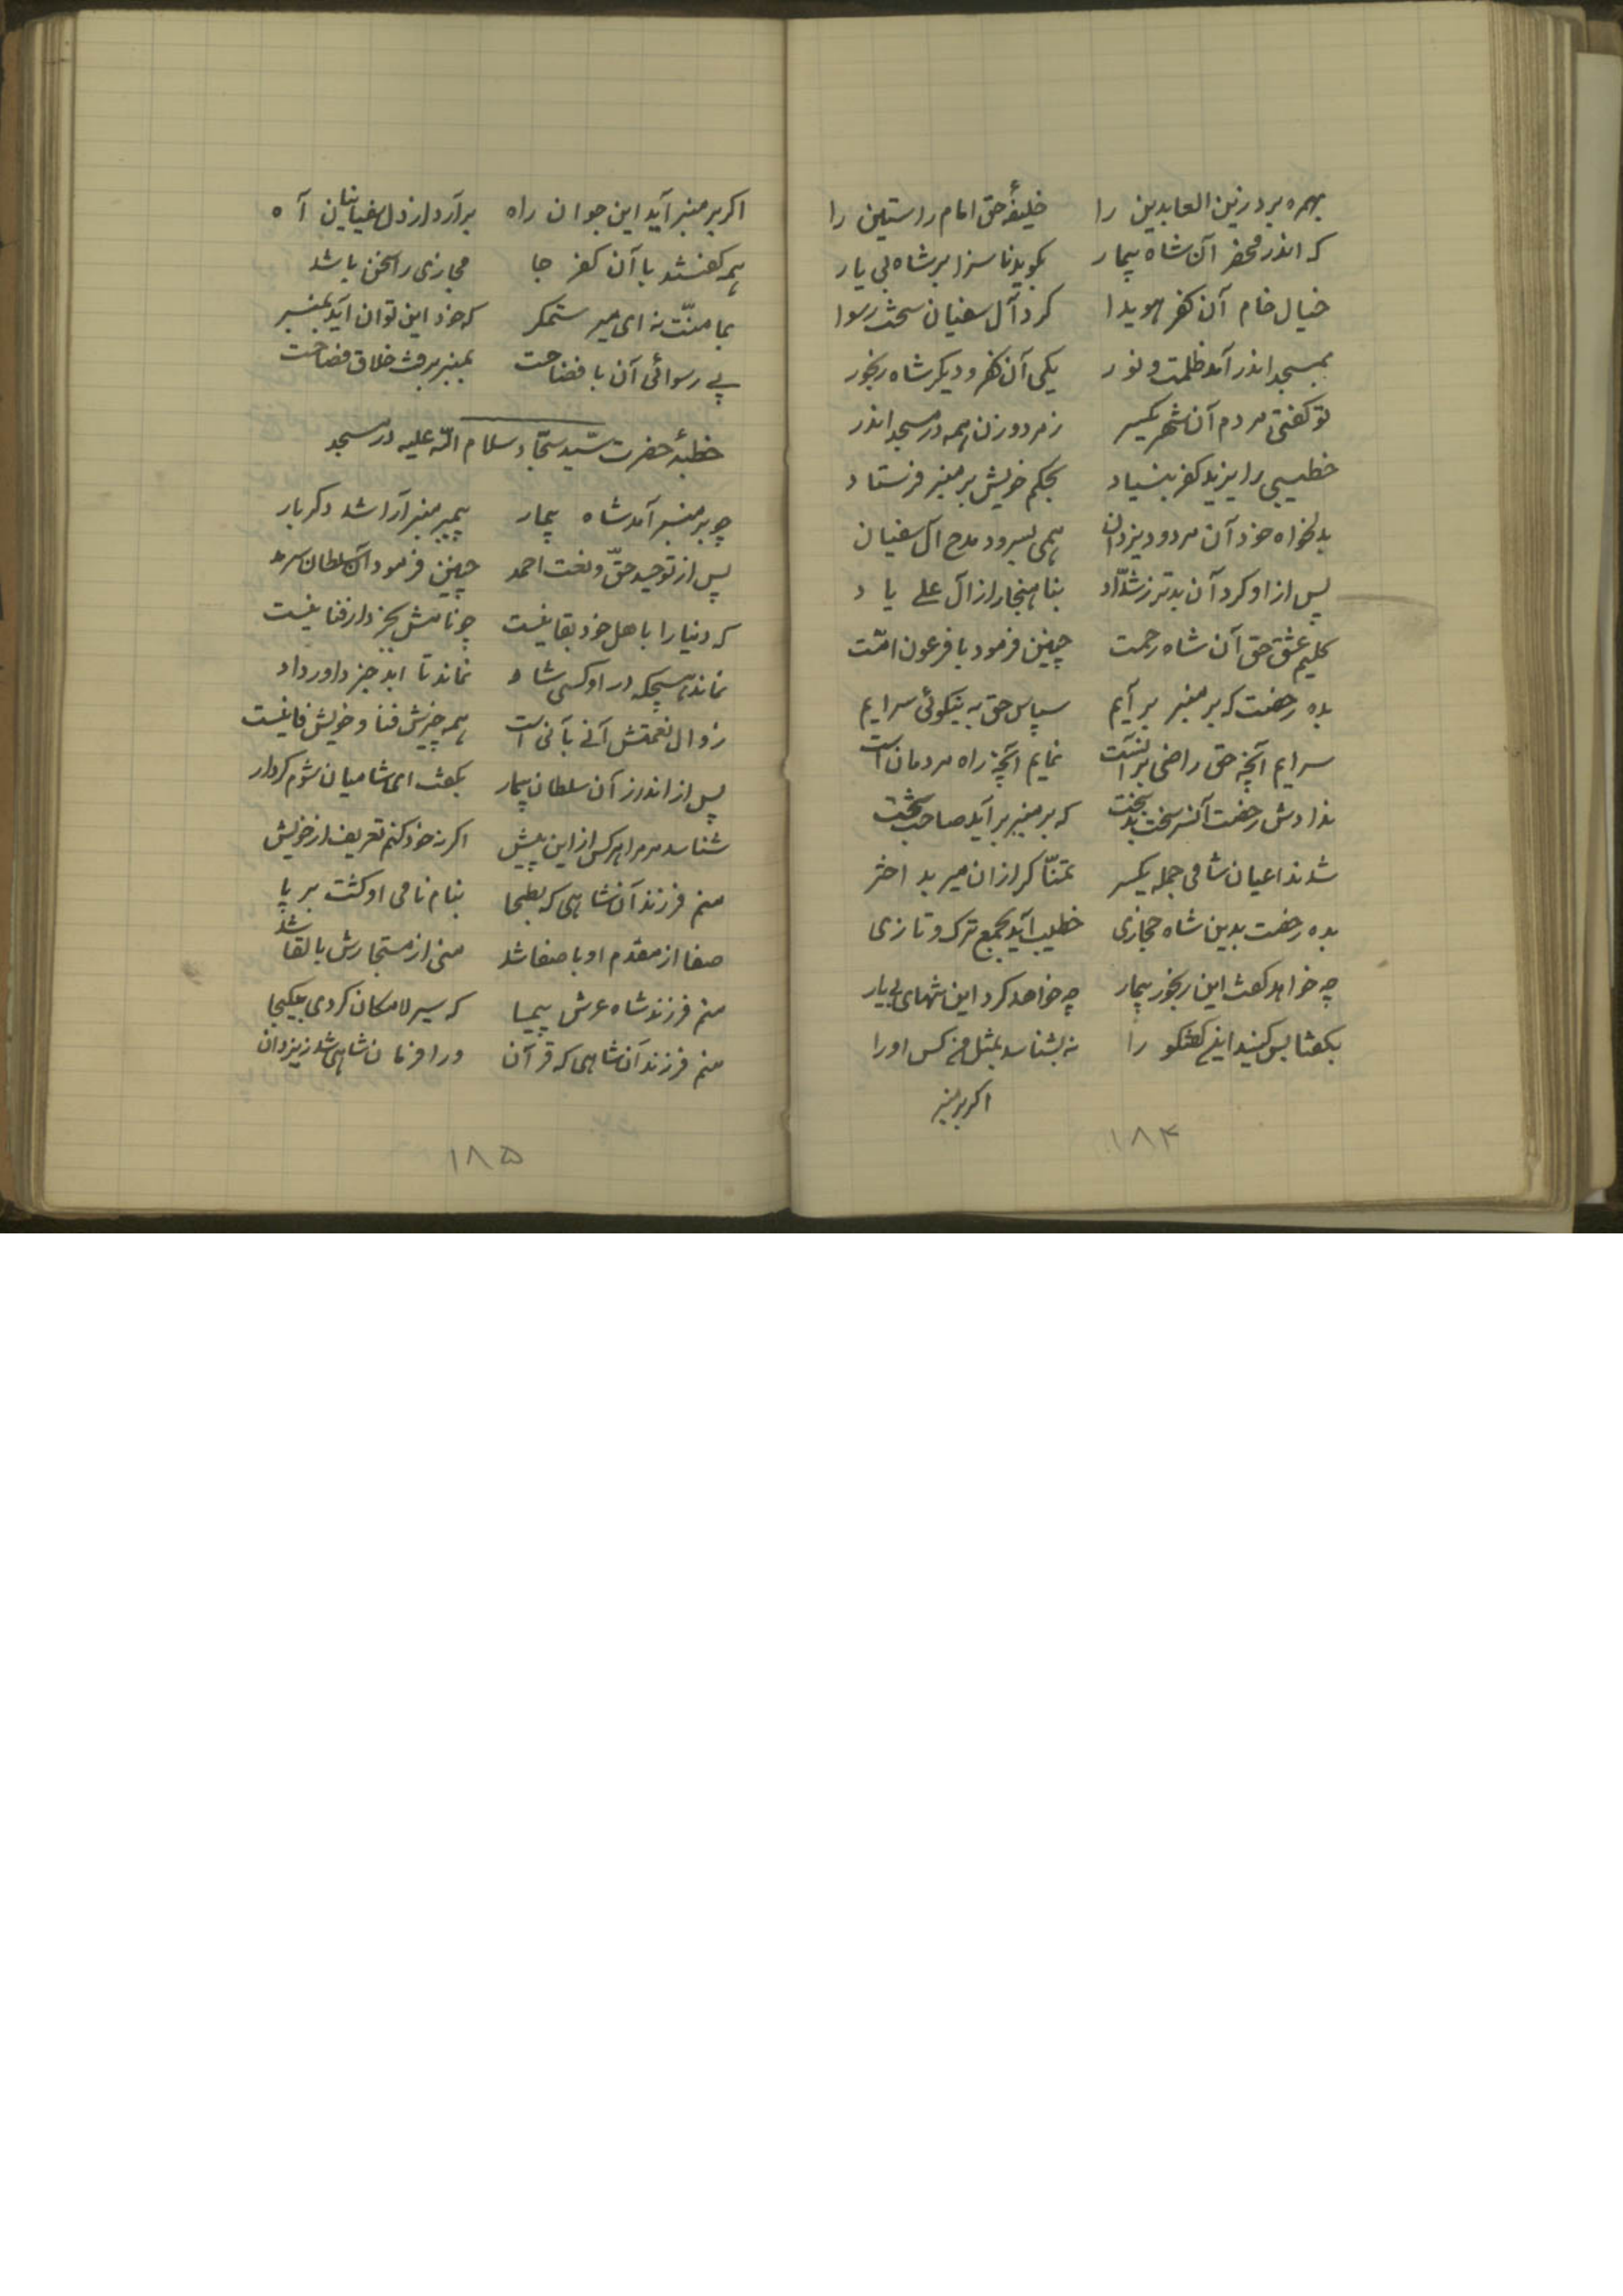 بهمره برد زین العابدین را خلیفهٔ حق امام راستین را
که اندر محضر آن شاه بیمار بگوید ناسزا بر شاه بی یار
خیال خام آن کفر هویدا کرد آل سفیان سخت رسوا
بمسجد اندر آمد ظلمت و نور یکی آن کفر و دیگر شاه رنجور
تو گفتی مردم آن شهر یکسر ز مرد و زن همه در مسجد اندر
خطیبی را یزید کفر بنیاد بحکم خویش بر منبر فرستاد
بدلخواه خود آن مردود یزدان همی بسرود مدح آل سفیان
پس از او کرد آن بدتر ز شدّاد بناهنجار از آل علی یاد
کلیم عشق حق آن شاه رحمت چنین فرمود با فرعون امّت
بده رخصت که بر منبر بر آیم سپاس حق به نیکوئی سرایم
سرایم آنچه حق راضی بر آنست نمایم آنچه راه مردمان است
ندادش رخصت آنسر سخت بدبخت که بر منبر بر آید صاحب تخت
شدند اعیان شامی جمله یکسر تمنّا گر از ان میر بد اختر
بده رخصت بدین شاه حجازی خطیب آید بجمع ترک و تازی
چه خواهد گفت این رنجور بیمار چه خواهد کرد این تنهای بی یار
بگفتا بس کنید این گفتگو را نه بشناسد بمثل من کس او را
اگر بر منبر
۱۸۴
اگر بر منبر آید این جوان راه برآرد از دل سفیانیان آه
همه گفتند با آن کفر جا مجازی را سخن باشد
بما منّت نه ای میر ستمگر که خود این توان آید بمنبر
پی رسوائی آن با فضاحت بمنبر بر رفت خلاق فصاحت
خطبهٔ حضرت سیّد سجّاد سلام الله علیه در مسجد
چو بر منبر آمد شاه بیمار پیمبر منبر آرا شد دگر بار
پس از توحید حقّ و نعت احمد چنین فرمود آن سلطان سرمد
که دنیا را با هل خود بقا نیست چو نامش بجز دار فنا نیست
نماند هیچکه در او کسی شاد نماند تا ابد جز داور داد
زوال نعمتش آنی بآنی است همه چیزش فنا و خویش فانیست
پس از اندرز آن سلطان بیمار بگفت ای شامیان شوم کردار
شناسد مر مرا هر کس از این پیش اگر نه خود کنم تعریف از خویش
منم فرزند آن شاهی که بطحا بنام نامی او گشت بر پا
صفا از مقدم او با صفا شد منی از مستجارش با لقا شد
منم فرزند شاه عرش پیما که سیر لامکان کردی بیکجا
منم فرزند آن شاهی که قرآن ورا فرمان شاهی شد ز یزدان
۱۸۵